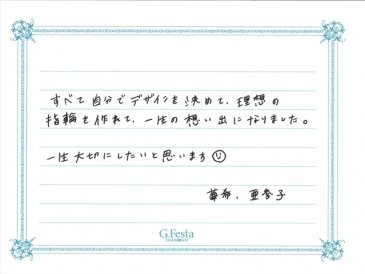 すべて自分でデザインを決めて、理想の
指輪を作れて、一生の想い出になりました。
一生大切にしたいと思います
G.Festa